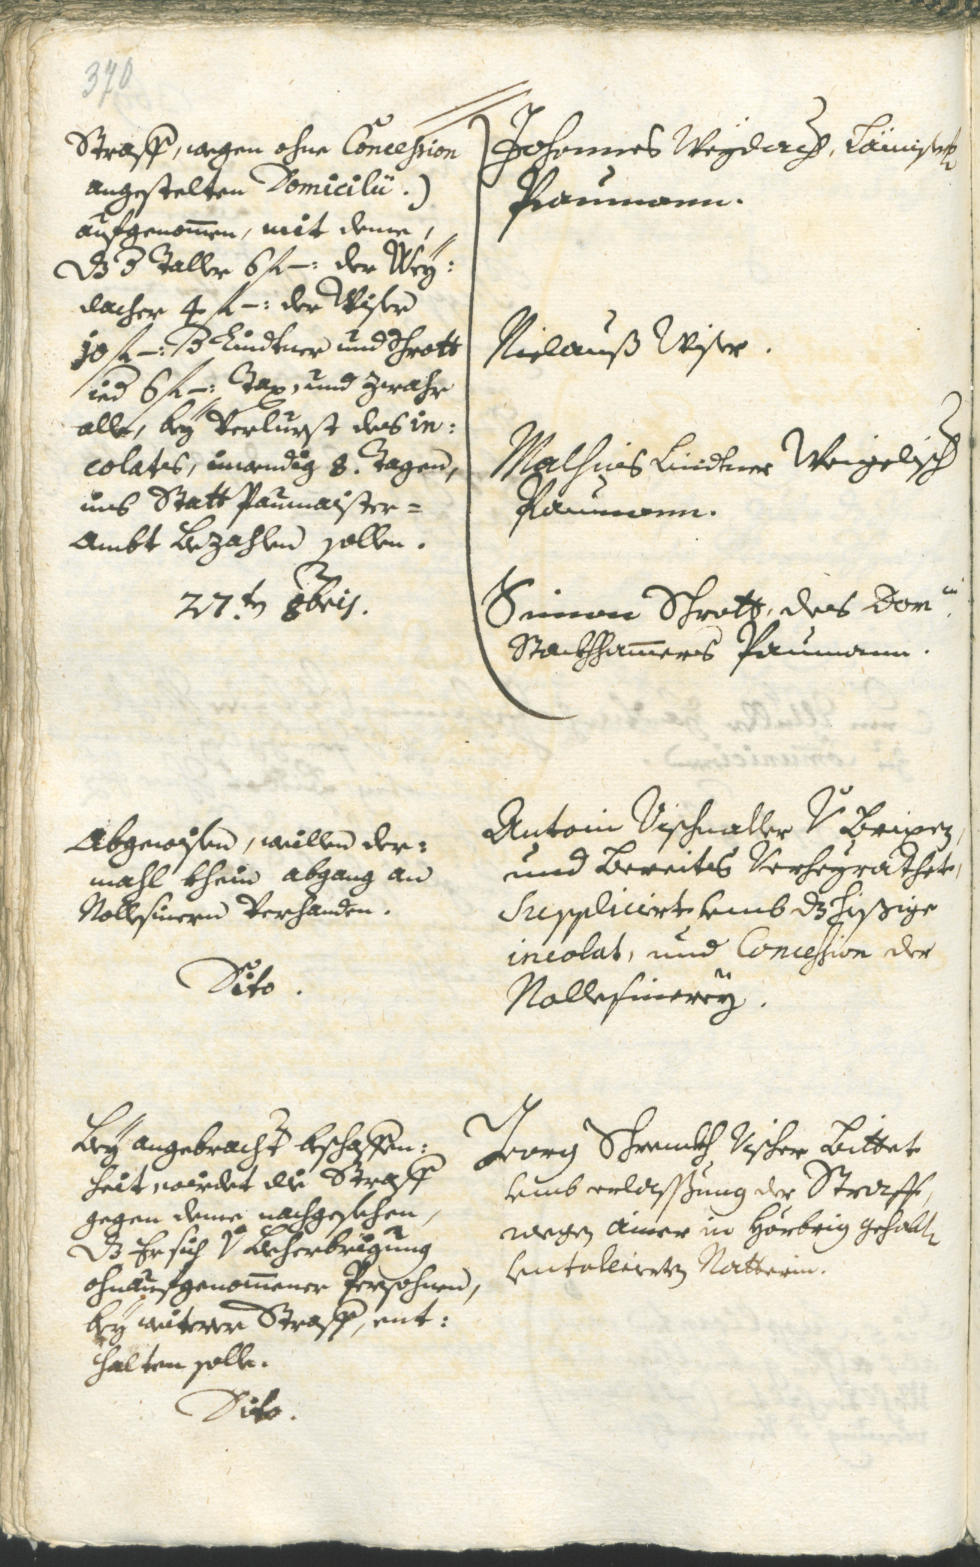 370
Straff, wegen ohne Concession
angestelten Domicilii.)
aufgenomen, mit deme,
dz 3 Taller 6 f –: der Wey:
dacher 4 f –: der Wiser
10 f –: Lindtner und Schrott
ied 6 f –: Tax, und zwahr
alle, bey Verlurst des in:
colates, inwendig 8. Tagen,
ins Statt Paumaister=
Ambt bezahlen sollen.
27.tn 8bris.
Johannes Weydach,
Paumann.
Niclauß Wiser.
Mathias Lindtner Weigelisch
Paumann.
Simon Schrott, des Dom
Paumann.
Abgewisen, weillen der:
mahl khein abgang an
Nollesinern verhanden.
Dito.
Antoni Vischnaller V Brixen,
und bereits Verheyrathet,
Supplicirt umb dz hießige
incolat, und Concession der
Nollesinerey.
Bey angebracht beschaffen:
heit, wirdet die Straff
gegen deme nachgesehen,
dz Er sich V Beherbrigung
ohnaufgenommener Persohnen,
bey weiterer Straff, ent:
halten solle.
Dito.
Georg Vischer Bittet
umb erlassung der Straff,
wegen ainer in Hörbrig gehaltn
Natterin.